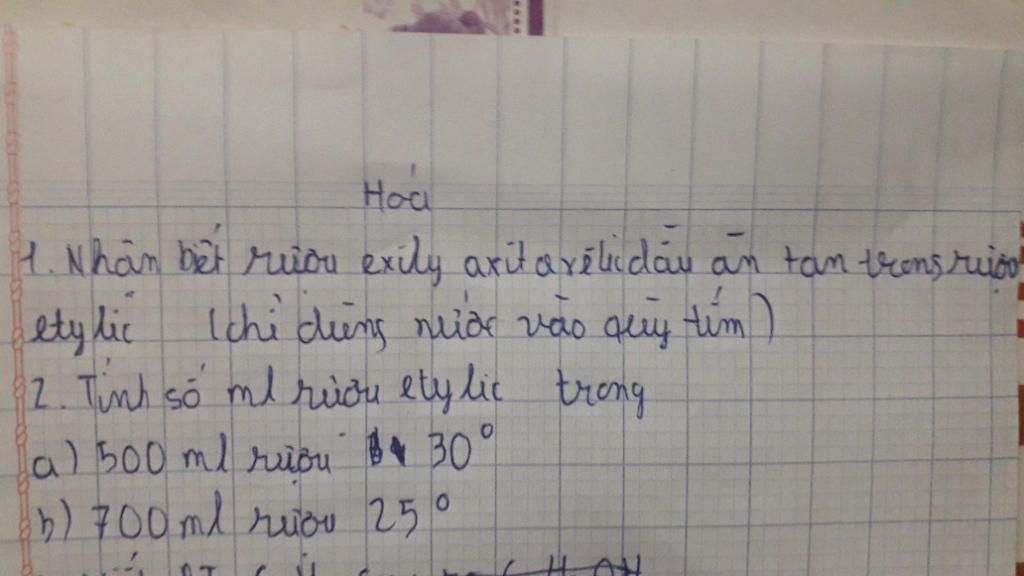 Hoá
1. Nhân bết rượu exily axit axêlic dầu ăn tan trong rượu
etylic (chỉ dùng nước vào quỳ tím)
2. Tính số ml rượu etylic trong
a) 500 ml rượu 30°
b) 700 ml rượu 25°